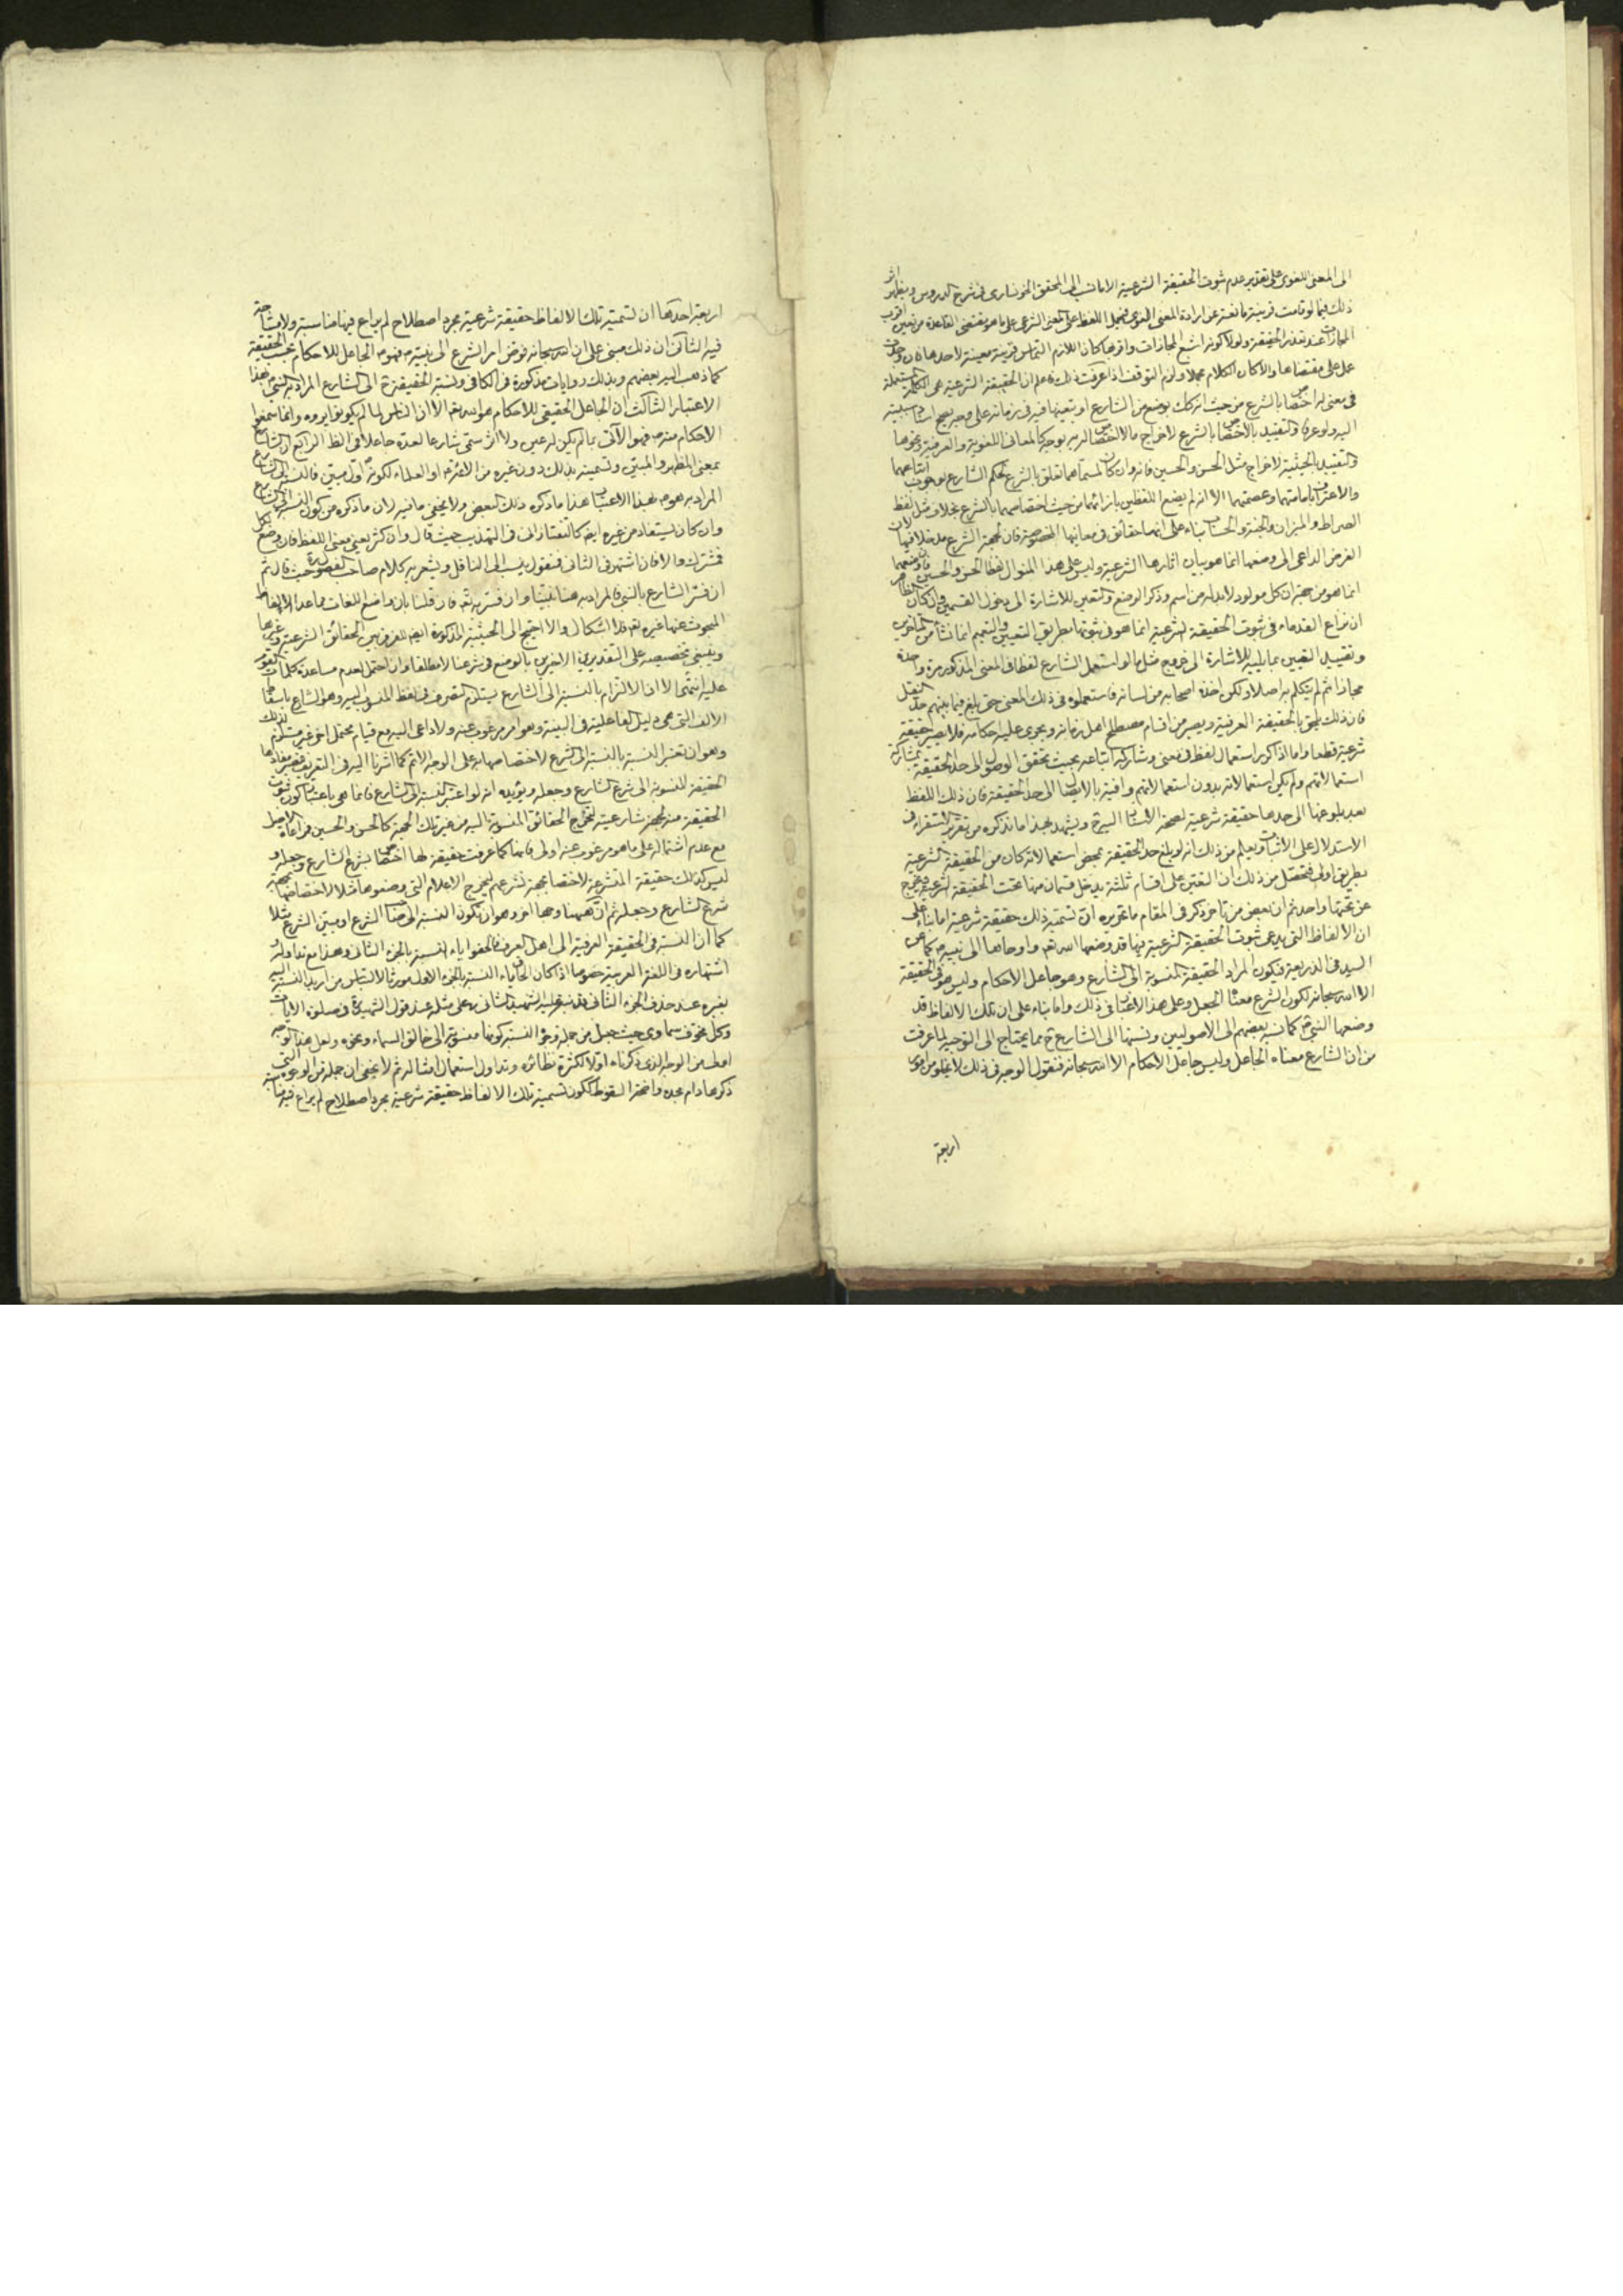 الى المعنى اللغوى على تقدير عدم ثبوت الحقيقة الشرعية الا ما نسب الى المحقق الخونسارى فى شرح الدروس ويظهر اثر
ذلك فيما لو قامت قرينة مانعة عن ارادة المعنى اللغوى فيحمل اللفظ على المعنى الشرعى على ما هو مقتضى القاعدة من تعين اقرب
المجازات عند تعذر الحقيقة ولولا كونه اشيع المجازات واقربها كان اللازم التماس قرينة معينة لاحدها فان وجدت
عمل على مقتضاها والا كان الكلام مجملا ولزم التوقف اذا عرفت ذلك فاعلم ان الحقيقة الشرعية هى الكلمة المستعملة
فى معنى له اختصاص بالشرع من حيث انه كك بوضع من الشارع او بتعينها فيه فى زمانه على وجه يصح استناد سببيته
اليه ولو عرفا والتقييد بالاختصاص بالشرع لاخراج ما لا اختصاص له به بوجه كالمعانى اللغوية والعرفية ونحوها
والتقييد بالحيثية لاخراج مثل الحسن والحسين فانه وان كان لمسماهما تعلق بالشرع لحكم الشارع بوجوب اتباعهما
والاعتراف بامامتهما وعصمتهما الا انه لم يضع اللفظين بازائهما من حيث اختصاصهما بالشرع بخلاف مثل لفظ
الصراط والميزان والجنة والحساب بناء على انها حقائق فى معانيها المخصوصة فان لجهة الشرع مدخلا فيها لان
الغرض الداعى الى وضعها انما هو بيان اثارها الشرعية وليس على هذا المنوال لفظا الحسن والحسين فان وضعهما
انما هو من جهة ان كل مولود لابد له من اسم وذكر الوضع والتعين للاشارة الى دخول القسمين وان كان الظاهر
ان نزاع القدماء فى ثبوت الحقيقة الشرعية انما هو فى ثبوتها بطريق التعيين والتعميم انما نشأ من المتاخرين
وتقييد التعين بما يليه للاشارة الى خروج مثل ما لو استعمل الشارع لفظا فى المعنى المذكور مرة واحدة
مجازا ثم لم يتكلم به اصلا ولكن اخذه اصحابه من لسانه فاستعملوه فى ذلك المعنى حتى بلغ فيما بينهم حد النقل
فان ذلك يلحق بالحقيقة العرفية ويصير من اقسام مصطلح اهل زمانه ويجرى عليه احكامه فلا يصير حقيقة
شرعية قطعا واما اذا كرر استعمال لفظ فى معنى وشاركه اتباعه بحيث تحقق الوصول الى حد الحقيقة بمشاركة
استعمالاتهم ولم يكن استعمالاته بدون استعمالاتهم وافية بالايصال الى حد الحقيقة فان ذلك اللفظ
بعد بلوغها الى حدها حقيقة شرعية لصحة الاستناد اليه ح ويشهد بهذا ما نذكره من تقرير الاستقراء فى
الاستدلال على الاثبات ويعلم من ذلك انه لو بلغ حد الحقيقة بمحض استعمالاته كان من الحقيقة الشرعية
بطريق اولى فتحصل من ذلك ان التعين على اقسام ثلثة يدخل قسمان منها تحت الحقيقة الشرعية ويخرج
عن تحتها واحد ثم ان بعض من تاخر ذكر فى المقام ما تحريره ان تسمية ذلك حقيقة شرعية اما بناء على
ان الالفاظ التى يدعى ثبوت الحقيقة الشرعية فيها قد وضعها الله تعالى واوحاها الى نبيه ص كما عن
السيد فى الذريعة فيكون المراد الحقيقة المنسوبة الى الشارع وهو جاعل الاحكام وليس هو فى الحقيقة
الا الله سبحانه لكون الشرع معناه الجعل وعلى هذا لا غبار فى ذلك واما بناء على ان تلك الالفاظ قد
وضعها النبى ص كما نسبه بعضهم الى الاصوليين ونسبتها الى الشارع ح مما يحتاج الى التوجيه لما عرفت
من ان الشارع معناه الجاعل وليس جاعل الاحكام الا الله سبحانه فنقول الوجه فى ذلك لا يخلو من امور
اربعة
اربعة احدها ان تسمية تلك الالفاظ حقيقة شرعية مجرد اصطلاح لم يراع فيها مناسبة ولا مشاحة
فيه الثانى ان ذلك مبنى على ان الله سبحانه فوض امر الشرع الى نبيه ص فهو ص الجاعل للاحكام بحسب الحقيقة
كما ذهب اليه بعضهم وبذلك روايات مذكورة فى الكافى ونسبة الحقيقة ح الى الشارع المراد به النبى ص بهذا
الاعتبار الثالث ان الجاعل الحقيقى للاحكام هو الله تعالى الا ان الناس لما لم يكونوا يروه وانما سمعوا
الاحكام منه ص فهو الآتى بما لم يكن له عين ولا اثر سمى شارعا لعده جاعلا فى الظاهر الرابع ان الشارع
بمعنى المظهر والمبين وتسميته بذلك دون غيره من الائمة ع او العلماء لكونه اول مبين فالنسبة الى الشارع
المراد به هو ص بهذا الاعتبار هذا ما ذكره ذلك البعض ولا يخفى ما فيه لان ما ذكره من كون النسبة الى الشارع
وان كان يستفاد من غيره ايضا كالتفتازانى فى التهذيب حيث قال وان كثر يعنى معنى اللفظ فان وضع لكل
فمشترك والا فان اشتهر فى الثانى فمنقول ينسب الى الناقل ويشعر به كلام صاحب الفصول حيث قال ثم
ان فسر الشارع بالنبى ص فالمراد به هنا نبينا وان فسر به تعالى فان قلنا بان واضع اللغات مما عدا الالفاظ
المبحوث عنها غيره تعالى فلا اشكال والا احتيج الى الحيثية المذكورة ايضا للفرق بين الحقائق الشرعية وغيرها
وينبغى تخصيصه على التقديرين الاخيرين بالوضع فى شرعنا لا مطلقا وان احتمل لعدم مساعدة كلمات القوم
عليه انتهى الا ان الالتزام بالنسبة الى الشارع يستلزم التصرف فى لفظ المنسوب اليه وهو الشارع باسقاط
الالف التى هى دليل الفاعلية فى البنية وهو امر مرغوب عنه ولا داعى اليه مع قيام محتمل اخر غير مستلزم لذلك
وهو ان تعتبر النسبة بالنسبة الى الشرع لاختصاصها به على الوجه الاتم كما اشرنا اليه فى التعريف فيصير مفادها
الحقيقة المنسوبة الى شرع الشارع وجعله ويؤيده انه لو اعتبر النسبة الى الشارع فانما هى باعتبار كون ثبوت
الحقيقة منه بجهة شارعيته لتخرج الحقائق المنسوبة اليه من غير تلك الجهة كالحسن والحسين فمراعاة الاصل
مع عدم اشتماله على ما هو مرغوب عنه اولى فانما كما عرفت حقيقة لها اختصاص بشرع الشارع وجعله و
ليس كذلك حقيقة المتشرعة لاختصاصها بجهة تشرعهم ليخرج الاعلام التى وضعوها مثلا لا لاختصاصها بجهة
شرع الشارع وجعله ثم ان هيهنا وجها اخر وهو ان تكون النسبة الى صاحب الشرع او مبين الشرع مثلا
كما ان النسبة فى الحقيقة العرفية الى اهل العرف فالحقوا ياء النسبة بالجزء الثانى وهذا مع تداوله و
اشتهاره فى اللغة العربية خصوصا اذا كان الحاق ياء النسبة بالجزء الاول مورثا لالتباس من اريد النسبة اليه
بغيره عند حذف الجزء الثانى قد نبه عليه الشهيد الثانى ره على مثله عند قول الشهيد ره فى صلوة الايات
وكل مخوف سماوى حيث جعل من جملة وجوه النسبة كونها منسوبة الى خالق السماء ونحوه ولعل هذا الوجه
اولى من الوجه الذى ذكرناه اولا لكثرة نظائره وتداول استعمال امثاله ثم لا يخفى ان جملة من الوجوه التى
ذكرها دام مجده واضحة السقوط ككون تسمية تلك الالفاظ حقيقة شرعية مجرد اصطلاح لم يراع فيه مناسبة